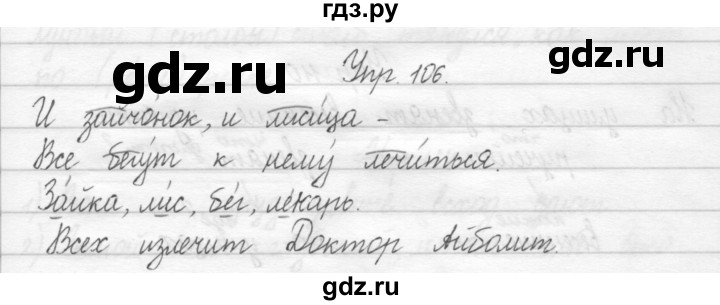 гдз.ру
gdz.ru
gdz.ru
Упр. 106.
И зайчо́нок, и лиси́ца –
Все бегу́т к нему́ лечи́ться.
За́йка, ли́с, бе́г, ле́карь.
Всех излечит Доктор Айболит.
gdz.ru
gdz.ru